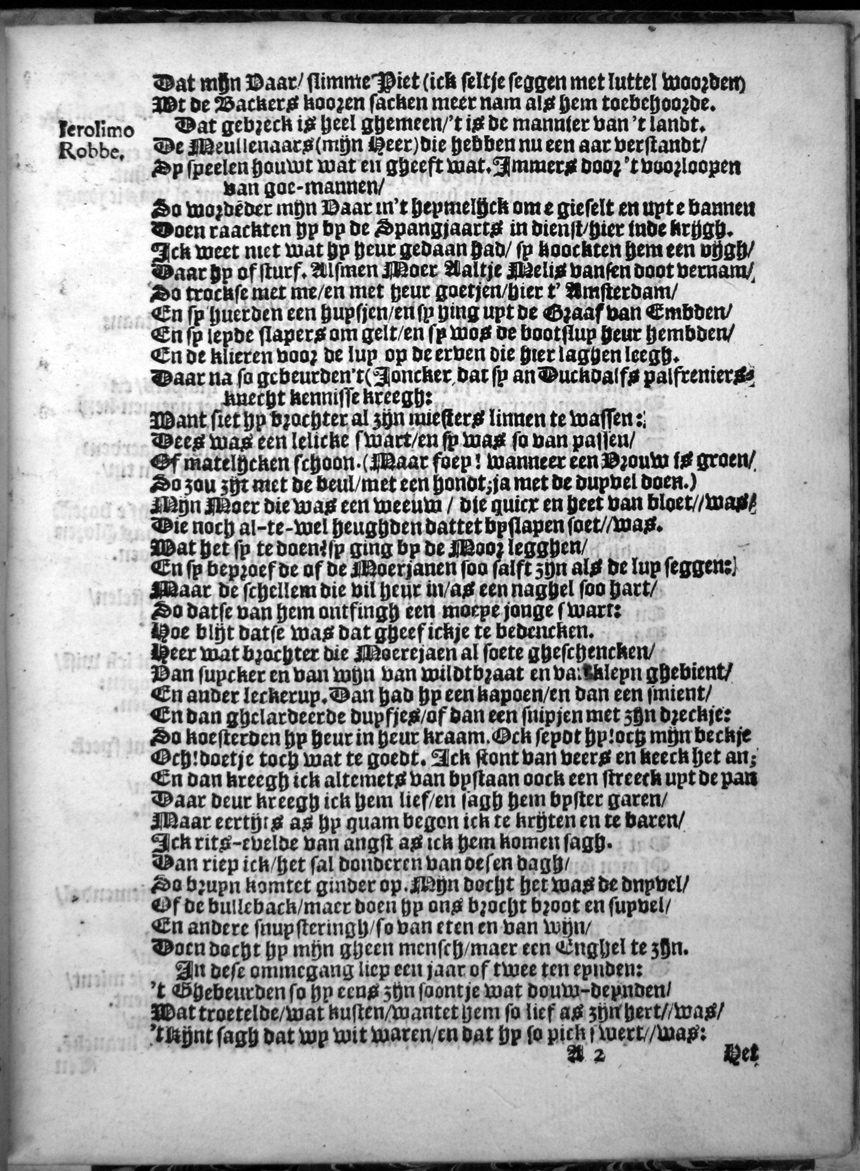 Dat mijn Vaar/ slimme Piet (ick seltje seggen met luttel woorden)
Wt de Backers kooren sacken meer nam als hem toebehoorde.
Ierolimo Dat gebreck is heel ghemeen/'t is de mannier van 't landt.
Robbe. De Meullenaars (mijn Heer) die hebben nu een aar verstandt/
Sy speelen houwt wat en gheeft wat. Immers door 't voorloopen
van goe-mannen/
So wordēder mijn Vaar in't heymelijck om e gieselt en uyt e bannen
Doen raackten hy by de Spangjaarts in dienst/hier inde krijgh.
Ick weet niet wat hy heur gedaan had/ sy koockten hem een vijgh/
Daar hy of sturf. Alsmen Moer Aaltje Melis vansen doot vernam/
So trockse met me/en met heur goetjen/hier t' Amsterdam/
En sy huerden een huysjen/en sy hing uyt de Graaf van Embden/
En sy leyde slapers om gelt/en sy wos de bootsluy heur hembden/
En de klieren voor de luy op de erven die hier laghen leegh.
Daar na so gebeurden't (Joncker dat sy an Duckdalfs palfreniers
knecht kennisse kreegh:
Want siet hy brochter al zijn miesters linnen te wassen:
Dees was een lelicke swart/en sy was so van passen/
Of matelijcken schoon. (Maar foey! wanneer een Vrouw is groen/
So zou zijt met de beul/met een hondt;ja met de duyvel doen.)
Mijn Moer die was een weeuw / die quicx en heet van bloet//was/
Die noch al-te-wel heughden dattet byslapen soet//was.
Wat het sy te doen?sy ging by de Moor legghen/
En sy beproefde of de Moerjanen soo salft zijn als de luy seggen:
Maar de schellem die vil heur in/as een naghel soo hart/
So datse van hem ontfingh een moeye jonge swart:
Hoe blijt datse was dat gheef ickje te bedencken.
Heer wat brochter die Moerejaen al soete gheschencken/
Van suycker en van wijn van wildtbraat en van kleyn ghebient/
En ander leckeruy. Dan had hy een kapoen/en dan een smient/
En dan ghelardeerde duyfjes/of dan een snipjen met zijn dreckje:
So koesterden hy heur in heur kraam. Ock seydt hy!och mijn beckje
Och!doetje toch wat te goedt. Ick stont van veers en keeck het an;
En dan kreegh ick altemets van bystaan oock een streeck uyt de pan
Daar deur kreegh ick hem lief/en sagh hem byster garen/
Maar eertijts as hy quam begon ick te krijten en te baren/
Ick rits-evelde van angst as ick hem komen sagh.
Dan riep ick/het sal donderen van desen dagh/
So bruyn komtet ginder op. Mijn docht het was de duyvel/
Of de bulleback/maer doen hy ons brocht broot en suyvel/
En andere snuysteringh/so van eten en van wijn/
Doen docht hy mijn gheen mensch/maer een Enghel te zijn.
In dese ommegang liep een jaar of twee ten eynden:
't Ghebeurden so hy eens zijn soontje wat douw-deynden/
Wat troetelde/wat kusten/wantet hem so lief as zijn hert//was/
't Kijnt sagh dat wy wit waren/en dat hy so pick swert//was:
A 2 Het